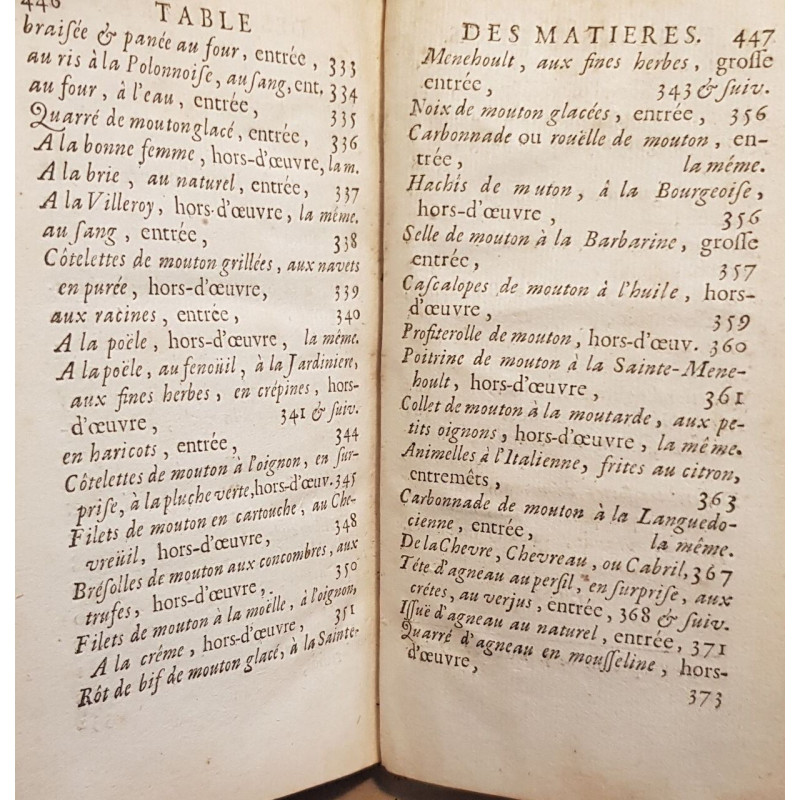 446 TABLE
braisée & panée au four, entrée, 333
au ris à la Polonnoise, au sang, ent. 334
au four, à l'eau, entrée, 335
Quarré de mouton glacé, entrée, 336
A la bonne femme, hors-d'œuvre, la m.
A la brie, au naturel, entrée, 337
A la Villeroy, hors-d'œuvre, la même.
au sang, entrée, 338
Côtelettes de mouton grillées, aux navets
en purée, hors-d'œuvre, 339
aux racines, entrée, 340
A la poële, hors-d'œuvre, la même.
A la poële, au fenoüil, à la Jardiniere,
aux fines herbes, en crépines, hors-
d'œuvre, 341 & suiv.
en haricots, entrée, 344
Côtelettes de mouton à l'oignon, en sur-
prise, à la pluche verte, hors-d'œuv. 345
Filets de mouton en cartouche, au Che-
vreüil, hors-d'œuvre, 348
Brésolles de mouton aux concombres, aux
trufes, hors-d'œuvre, 350
Filets de mouton à la moëlle, à l'oignon,
A la créme, hors-d'œuvre, 351
Rôt de bif de mouton glacé, à la Sainte-
DES MATIERES. 447
Menehoult, aux fines herbes, grosse
entrée, 343 & suiv.
Noix de mouton glacées, entrée, 356
Carbonnade ou rouëlle de mouton, en-
trée, la même.
Hachis de muton, à la Bourgeoise,
hors-d'œuvre, 356
Selle de mouton à la Barbarine, grosse
entrée, 357
Cascalopes de mouton à l'huile, hors-
d'œuvre, 359
Profiterolle de mouton, hors-d'œuv. 360
Poitrine de mouton à la Sainte-Mene-
hoult, hors-d'œuvre, 361
Collet de mouton à la moutarde, aux pe-
tits oignons, hors-d'œuvre, la même.
Animelles à l'Italienne, frites au citron,
entremêts, 363
Carbonnade de mouton à la Languedo-
cienne, entrée, la même.
De la Chevre, Chevreau, ou Cabril, 367
Tête d'agneau au persil, en surprise, aux
crêtes, au verjus, entrée, 368 & suiv.
Issuë d'agneau au naturel, entrée, 371
Quarré d'agneau en mousseline, hors-
d'œuvre, 373